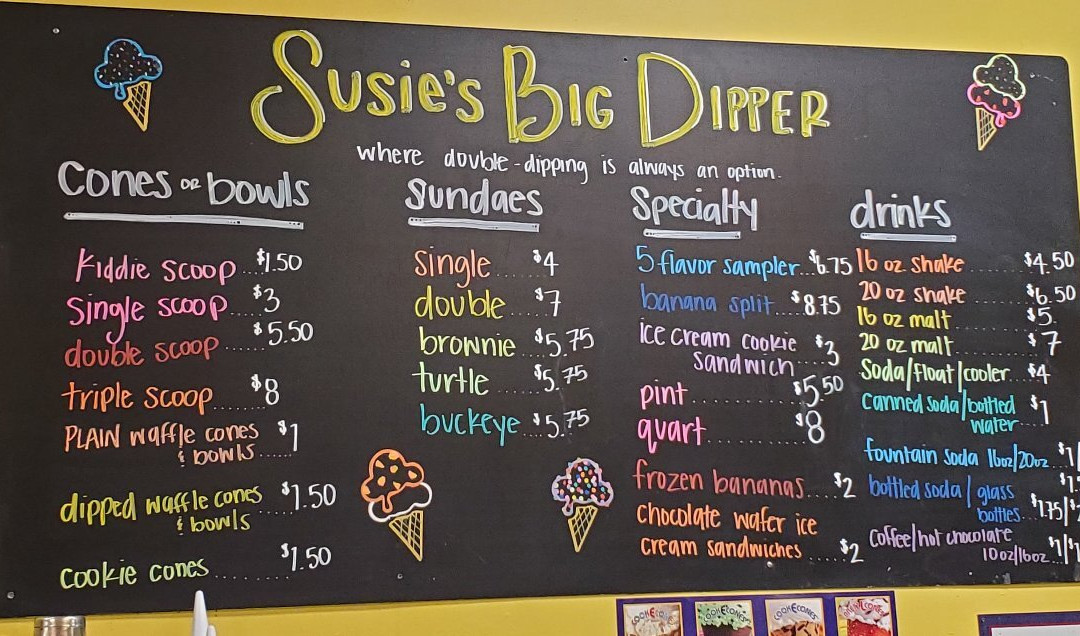 Susie's Big Dipper
where double-dipping is always an option.
Cones or bowls
kiddie scoop $1.50
Single scoop $3
double scoop $5.50
triple scoop $8
PLAIN waffle cones $1
& bowls
dipped waffle cones $1.50
& bowls
cookie cones $1.50
Sundaes
single $4
double $7
brownie $5.75
turtle $5.75
buckeye $5.75
Specialty
5 flavor sampler $6.75
banana split $8.75
ice cream cookie $3
sandwich
pint $5.50
quart $8
frozen bananas $2
chocolate wafer ice
cream sandwiches $2
drinks
16 oz shake $4.50
20 oz shake $6.50
16 oz malt $5
20 oz malt $7
Soda/float/cooler $4
canned soda/bottled $1
water
fountain soda 16oz/20oz $1/
bottled soda/glass
bottles $1.75/
coffee/hot chocolate
10oz/16oz $1/